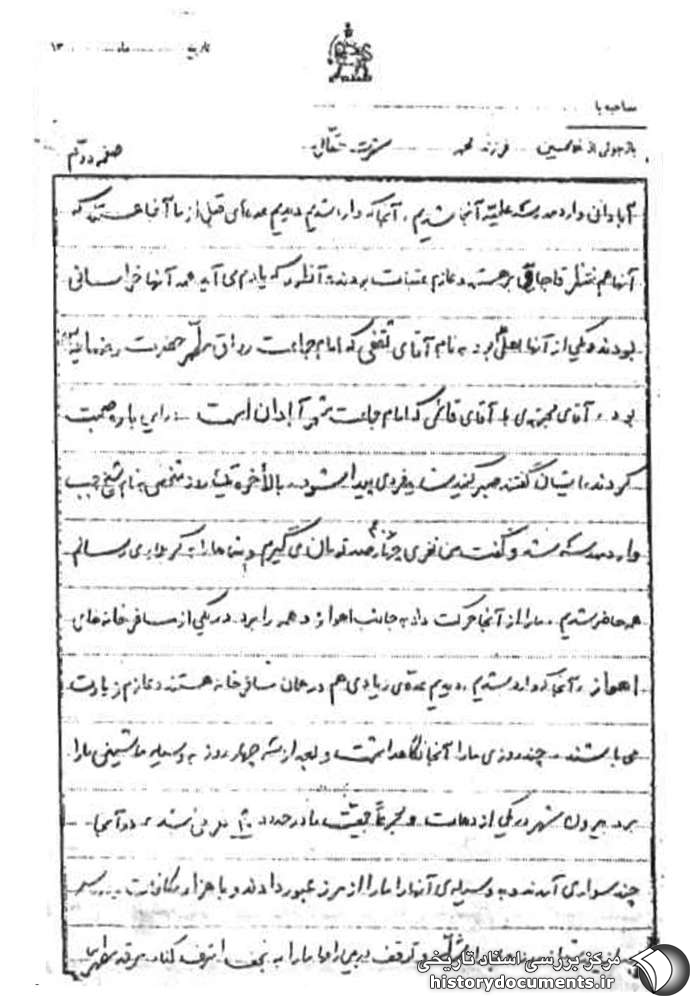 تاریخ ماه ۱۳
مصاحبه با
بازجوئی از غلامحسین فرزند محمد شهرت حقانی
صفحه دوم
آبادانی وارد مدرسه علمیه آنجا شدیم . آنجا که وارد شدیم دیدیم عده‌ای قبل از ما آنجا هستند که
آنها هم منتظر قاچاقچی هستند و عازم عتبات بودند آنطور که یادم می آید همه آنها خراسانی
بودند و یکی از آنها بود به نام آقای ثقفی که امام جماعت رواق مطهر حضرت رضا علیه
بود . آقای مجتهدی با آقای قائمی که امام جماعت شهر آبادان است در این باره صحبت
کردند ایشان گفتند صبر کنید فردی پیدا شود . بالاخره یک روز شخصی به نام شیخ
وارد مدرسه شد و گفت من نفری چهارصد تومان می گیرم و شما ها را به کربلا می رسانم
همه حاضر شدیم . ما را از آنجا حرکت داد به جانب اهواز و همه را برد در یکی از مسافرخانه های
اهواز . آنجا که وارد شدیم دیدیم عده‌ی زیادی هم در همان مسافرخانه هستند و عازم زیارت
می باشند . چند روزی ما را آنجا نگاه داشت و بعد از سه چهار روز به وسیله ماشینی ما را
برد بیرون شهر در یکی از دهات و مجموعاً جمعیت ما در حدود نفر می شدند در آنجا
چند سواری آمدند و به وسیله‌ی آنها ما را از مرز عبور دادند و با هزار مکافات
ما را به نجف اشرف کنار مرقد مطهر
مرکز بررسی اسناد تاریخی
historydocuments.ir